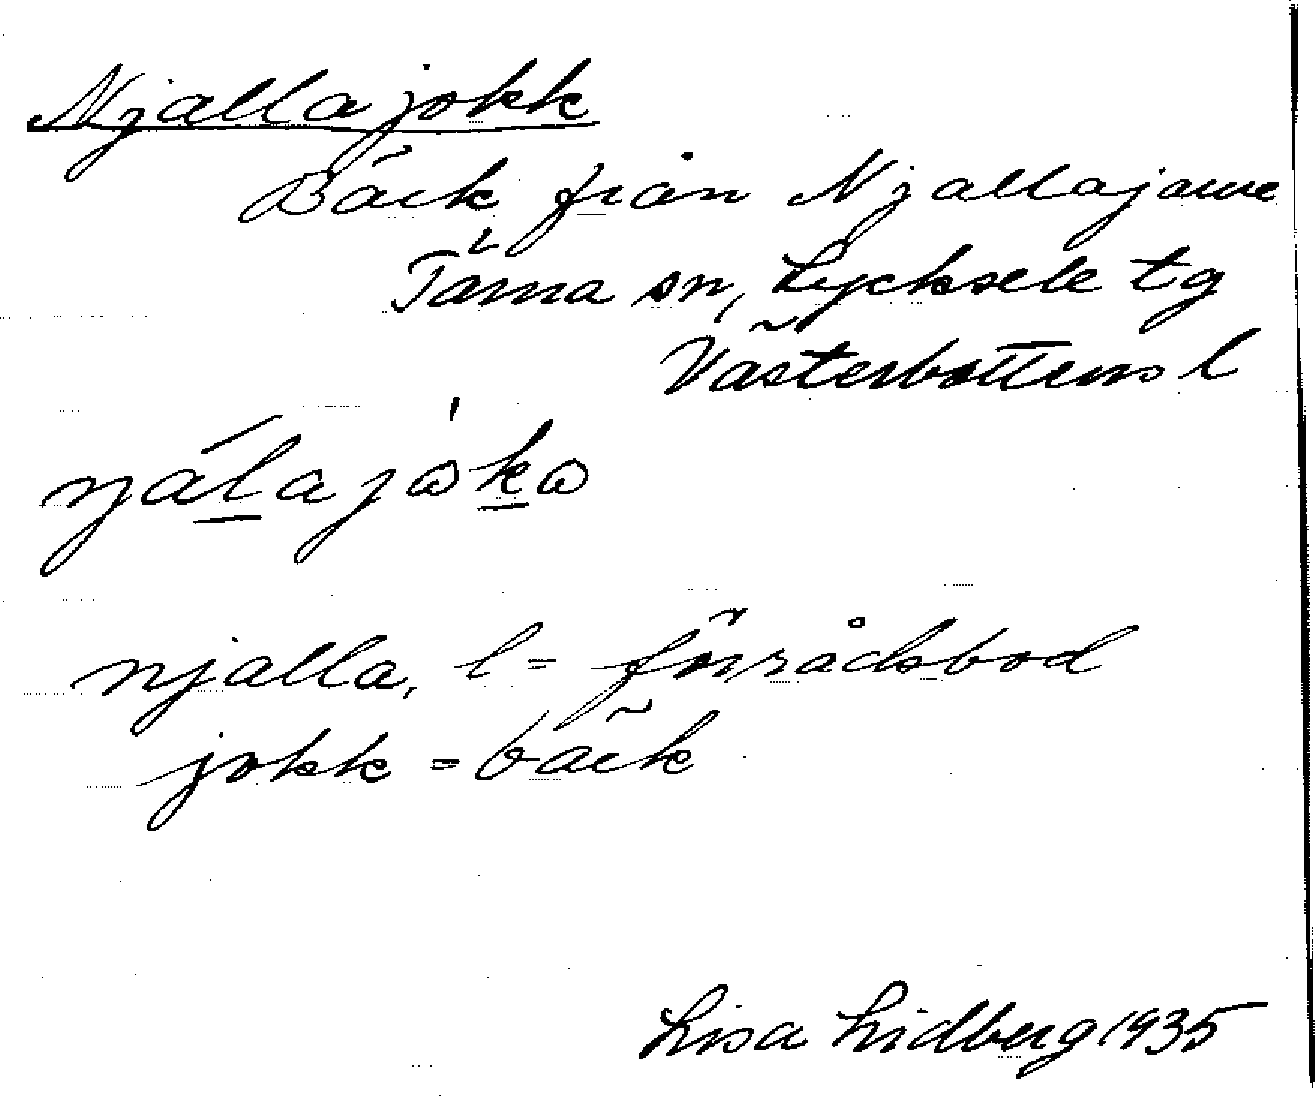 Njallajokk
Bäck från Njallajaure
Tärna sn, Lycksele tg
Västerbottens l
njalla, l = förrådsbod
jokk = bäck
Lisa Lidberg 1935